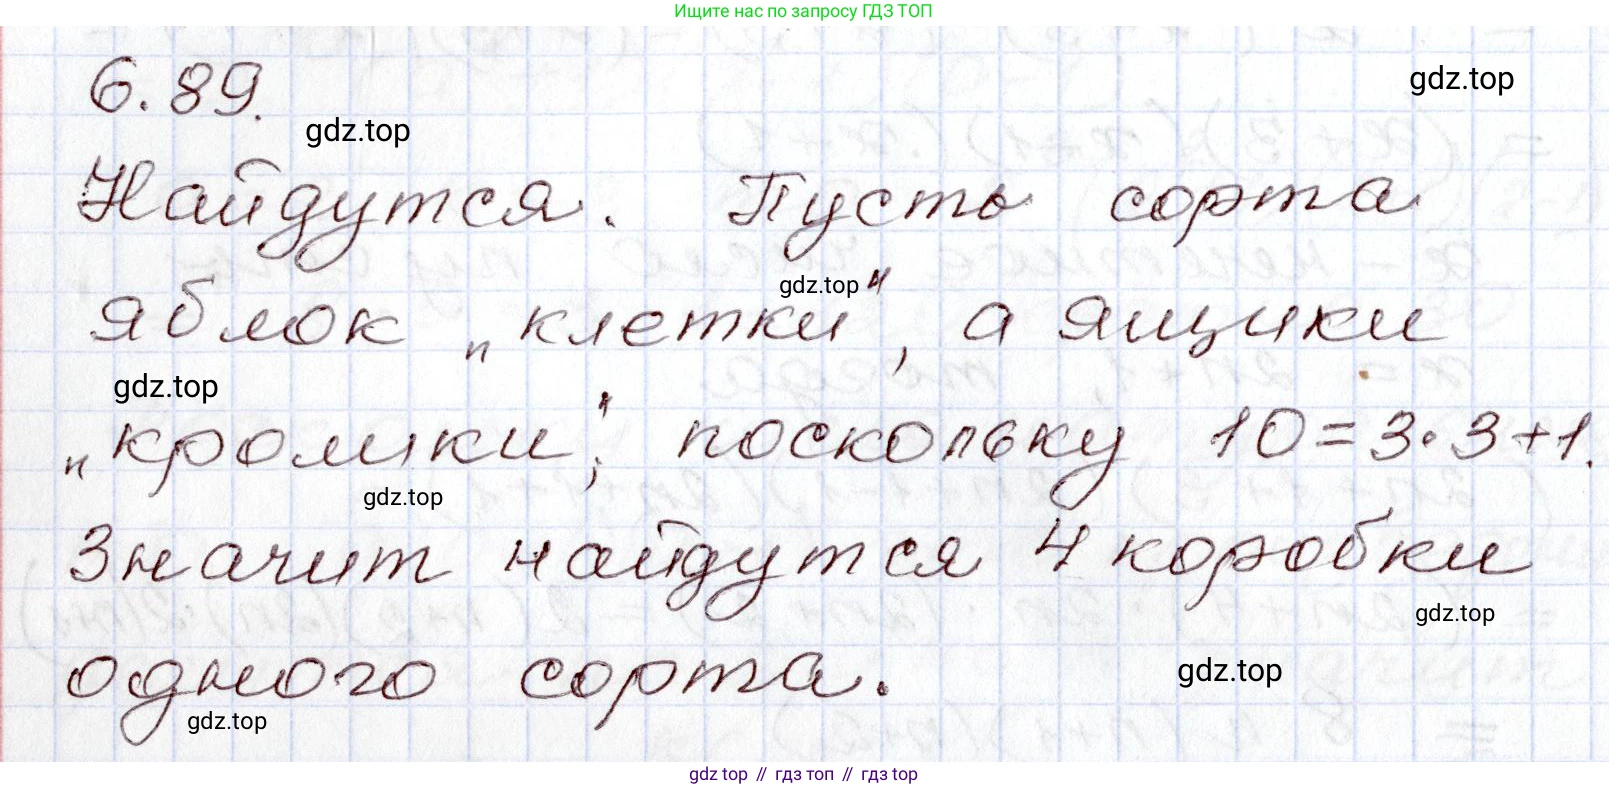 Ищите нас по запросу ГДЗ ТОП
6.89.
gdz.top
gdz.top
Найдутся. Пусть сорта
gdz.top
яблок „клетки", а ящики
gdz.top
„кролики", поскольку 10=3·3+1.
gdz.top
Значит найдутся 4 коробки
gdz.top
одного сорта.
gdz.top
gdz.top
gdz top // гдз топ // гдз top